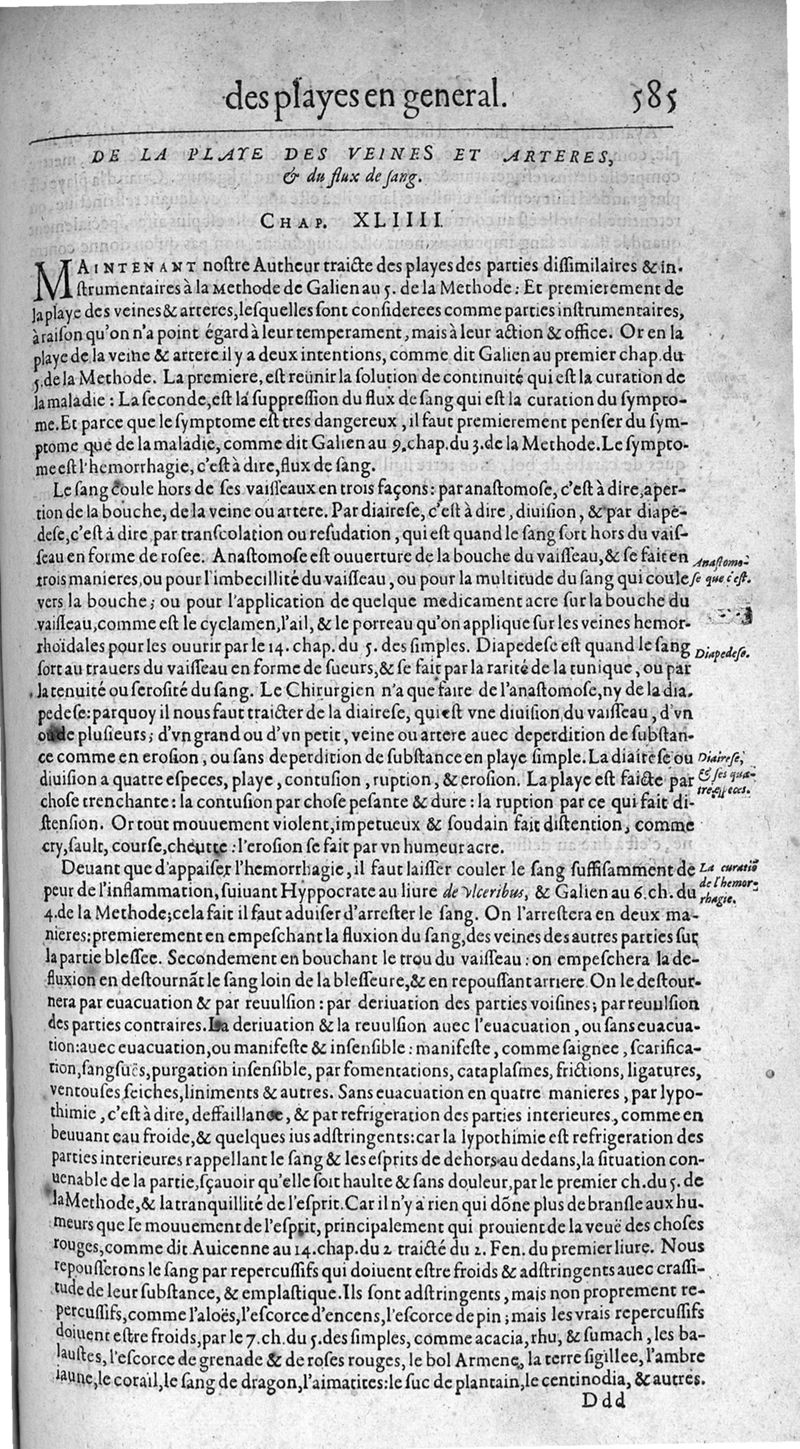 des playes en general. 585
DE LA PLAYE DES VEINES ET ARTERES,
& du flux de ſang.
CHAP. XLIIII.
MAINTENANT noſtre Autheur traicte des playes des parties diſſimilaires & in-
ſtrumentaires à la Methode de Galien au 5. de la Methode: Et premierement de
la playe des veines & arteres, leſquelles ſont conſiderees comme parties inſtrumentaires,
à raiſon qu'on n'a point égard à leur temperament, mais à leur action & office. Or en la
playe de la veine & artere il y a deux intentions, comme dit Galien au premier chap. du
5. de la Methode. La premiere, eſt reünir la ſolution de continuité qui eſt la curation de
la maladie: La ſeconde, eſt la ſuppreſſion du flux de ſang qui eſt la curation du ſympto-
me. Et parce que le ſymptome eſt tres dangereux, il faut premierement penſer du ſym-
ptome que de la maladie, comme dit Galien au 9. chap. du 3. de la Methode. Le ſympto-
me eſt l'hemorrhagie, c'eſt à dire, flux de ſang.
Le ſang coule hors de ſes vaiſſeaux en trois façons: par anaſtomoſe, c'eſt à dire, aper-
tion de la bouche, de la veine ou artere. Par diaireſe, c'eſt à dire, diuiſion, & par diape-
deſe, c'eſt à dire, par tranſcolation ou reſudation, qui eſt quand le ſang ſort hors du vaiſ-
ſeau en forme de roſee. Anaſtomoſe eſt ouuerture de la bouche du vaiſſeau, & ſe fait en
trois manieres, ou pour l'imbecillité du vaiſſeau, ou pour la multitude du ſang qui coule
vers la bouche; ou pour l'application de quelque medicament acre ſur la bouche du
vaiſſeau, comme eſt le cyclamen, l'ail, & le porreau qu'on applique ſur les veines hemor-
rhoïdales pour les ouurir par le 14. chap. du 5. des ſimples. Diapedeſe eſt quand le ſang
ſort au trauers du vaiſſeau en forme de ſueurs, & ſe fait par la rarité de la tunique, ou par
la tenuité ou ſeroſité du ſang. Le Chirurgien n'a que faire de l'anaſtomoſe, ny de la dia-
pedeſe: parquoy il nous faut traicter de la diaireſe, qui eſt vne diuiſion du vaiſſeau, d'vn
ou de pluſieurs; d'vn grand ou d'vn petit, veine ou artere auec deperdition de ſubſtan-
ce comme en eroſion, ou ſans deperdition de ſubſtance en playe ſimple. La diaireſe ou
diuiſion a quatre eſpeces, playe, contuſion, ruption, & eroſion. La playe eſt faicte par
choſe trenchante: la contuſion par choſe peſante & dure: la ruption par ce qui fait di-
ſtenſion. Or tout mouuement violent, impetueux & ſoudain fait diſtention, comme
cry, ſault, courſe, cheutte: l'eroſion ſe fait par vn humeur acre.
Deuant que d'appaiſer l'hemorrhagie, il faut laiſſer couler le ſang ſuffiſamment de
peur de l'inflammation, ſuiuant Hyppocrate au liure de vlceribus, & Galien au 6. ch. du
4. de la Methode; cela fait il faut aduiſer d'arreſter le ſang. On l'arreſtera en deux ma-
nieres: premierement en empeſchant la fluxion du ſang, des veines des autres parties ſur
la partie bleſſee. Secondement en bouchant le trou du vaiſſeau: on empeſchera la de-
fluxion en deſtournāt le ſang loin de la bleſſeure, & en repouſſant arriere. On le deſtour-
nera par euacuation & par reuulſion: par deriuation des parties voiſines; par reuulſion
des parties contraires. La deriuation & la reuulſion auec l'euacuation, ou ſans euacua-
tion: auec euacuation, ou manifeſte & inſenſible: manifeſte, comme ſaignee, ſcarifica-
tion, ſangſuës, purgation inſenſible, par fomentations, cataplaſmes, frictions, ligatures,
ventouſes ſeiches, liniments & autres. Sans euacuation en quatre manieres, par lypo-
thimie, c'eſt à dire, deffaillance, & par refrigeration des parties interieures, comme en
beuuant eau froide, & quelques ius adſtringents: car la lypothimie eſt refrigeration des
parties interieures rappellant le ſang & les eſprits de dehors au dedans, la ſituation con-
uenable de la partie, ſçauoir qu'elle ſoit haulte & ſans douleur, par le premier ch. du 5. de
la Methode, & la tranquillité de l'eſprit. Car il n'y a rien qui dōne plus de branſle aux hu-
meurs que le mouuement de l'eſprit, principalement qui prouient de la veuë des choſes
rouges, comme dit Auicenne au 14. chap. du 2 traicté du 2. Fen. du premier liure. Nous
repouſſerons le ſang par repercuſſifs qui doiuent eſtre froids & adſtringents auec craſſi-
tude de leur ſubſtance, & emplaſtique. Ils ſont adſtringents, mais non proprement re-
percuſſifs, comme l'aloës, l'eſcorce d'encens, l'eſcorce de pin; mais les vrais repercuſſifs
doiuent eſtre froids, par le 7. ch. du 5. des ſimples, comme acacia, rhu, & ſumach, les ba-
lauſtes, l'eſcorce de grenade & de roſes rouges, le bol Armene, la terre ſigillee, l'ambre
iaune, le corail, le ſang de dragon, l'aimatites: le ſuc de plantain, le centinodia, & autres.
Ddd
Anaſtomo-
ſe que c'eſt.
Diapedeſe.
Diaireſe,
& ſes qua-
tre eſpeces.
La curatiō
de l'hemor-
rhagie.